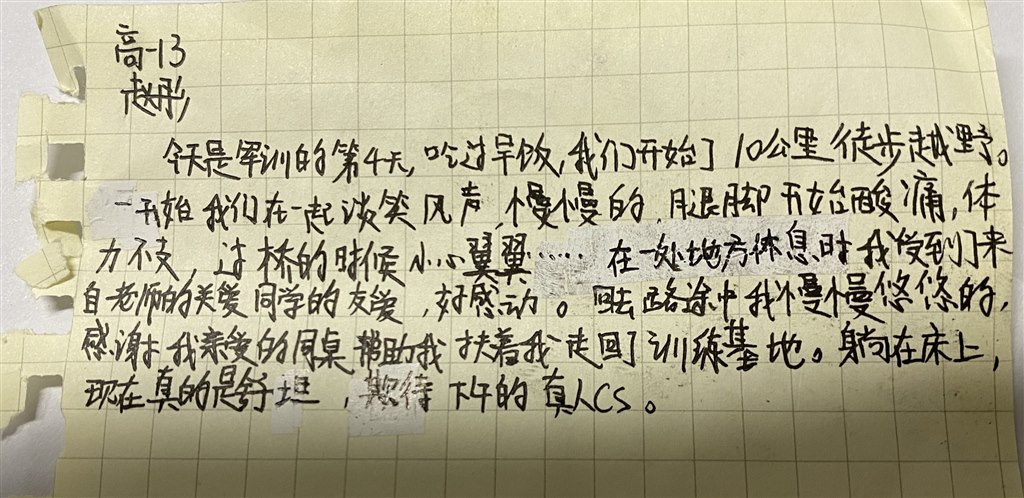 高一13
赵彤
今天是军训的第4天,吃过早饭,我们开始了10公里徒步越野。
一开始我们在一起谈笑风声,慢慢的,腿脚开始酸痛,体
力不支,过桥的时候小心翼翼…… 在一处地方休息时我受到了来
自老师的关爱同学的友爱,好感动。回去路途中我慢慢悠悠的,
感谢我亲爱的同桌帮助我扶着我走回了训练基地。躺在床上,
现在真的是舒坦,期待下午的真人CS。